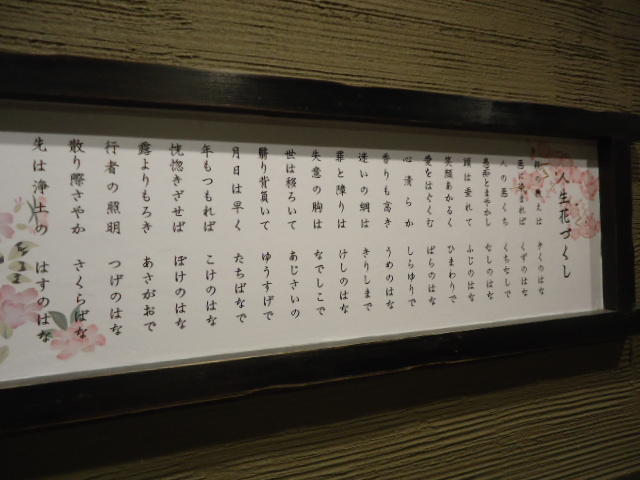 人生花づくし
親の教えは きくのはな
悪に染まれば くずのはな
人の悪くち くちなしで
頭は垂れて ふじのはな
笑顔あかるく ひまわりで
愛をはぐくむ ばらのはな
心清らか しらゆりで
香りも高き うめのはな
迷いの綱は きりしまで
罪と障りは けしのはな
失意の胸は なでしこで
世は移ろいて あじさいの
驕り背負いて ゆうすげで
月日は早く たちばなで
年もつもれば こけのはな
恍惚きざせば ぼけのはな
露よりもろき あさがおで
行者の照明 つげのはな
散り際さやか さくらばな
先は浄土の はすのはな